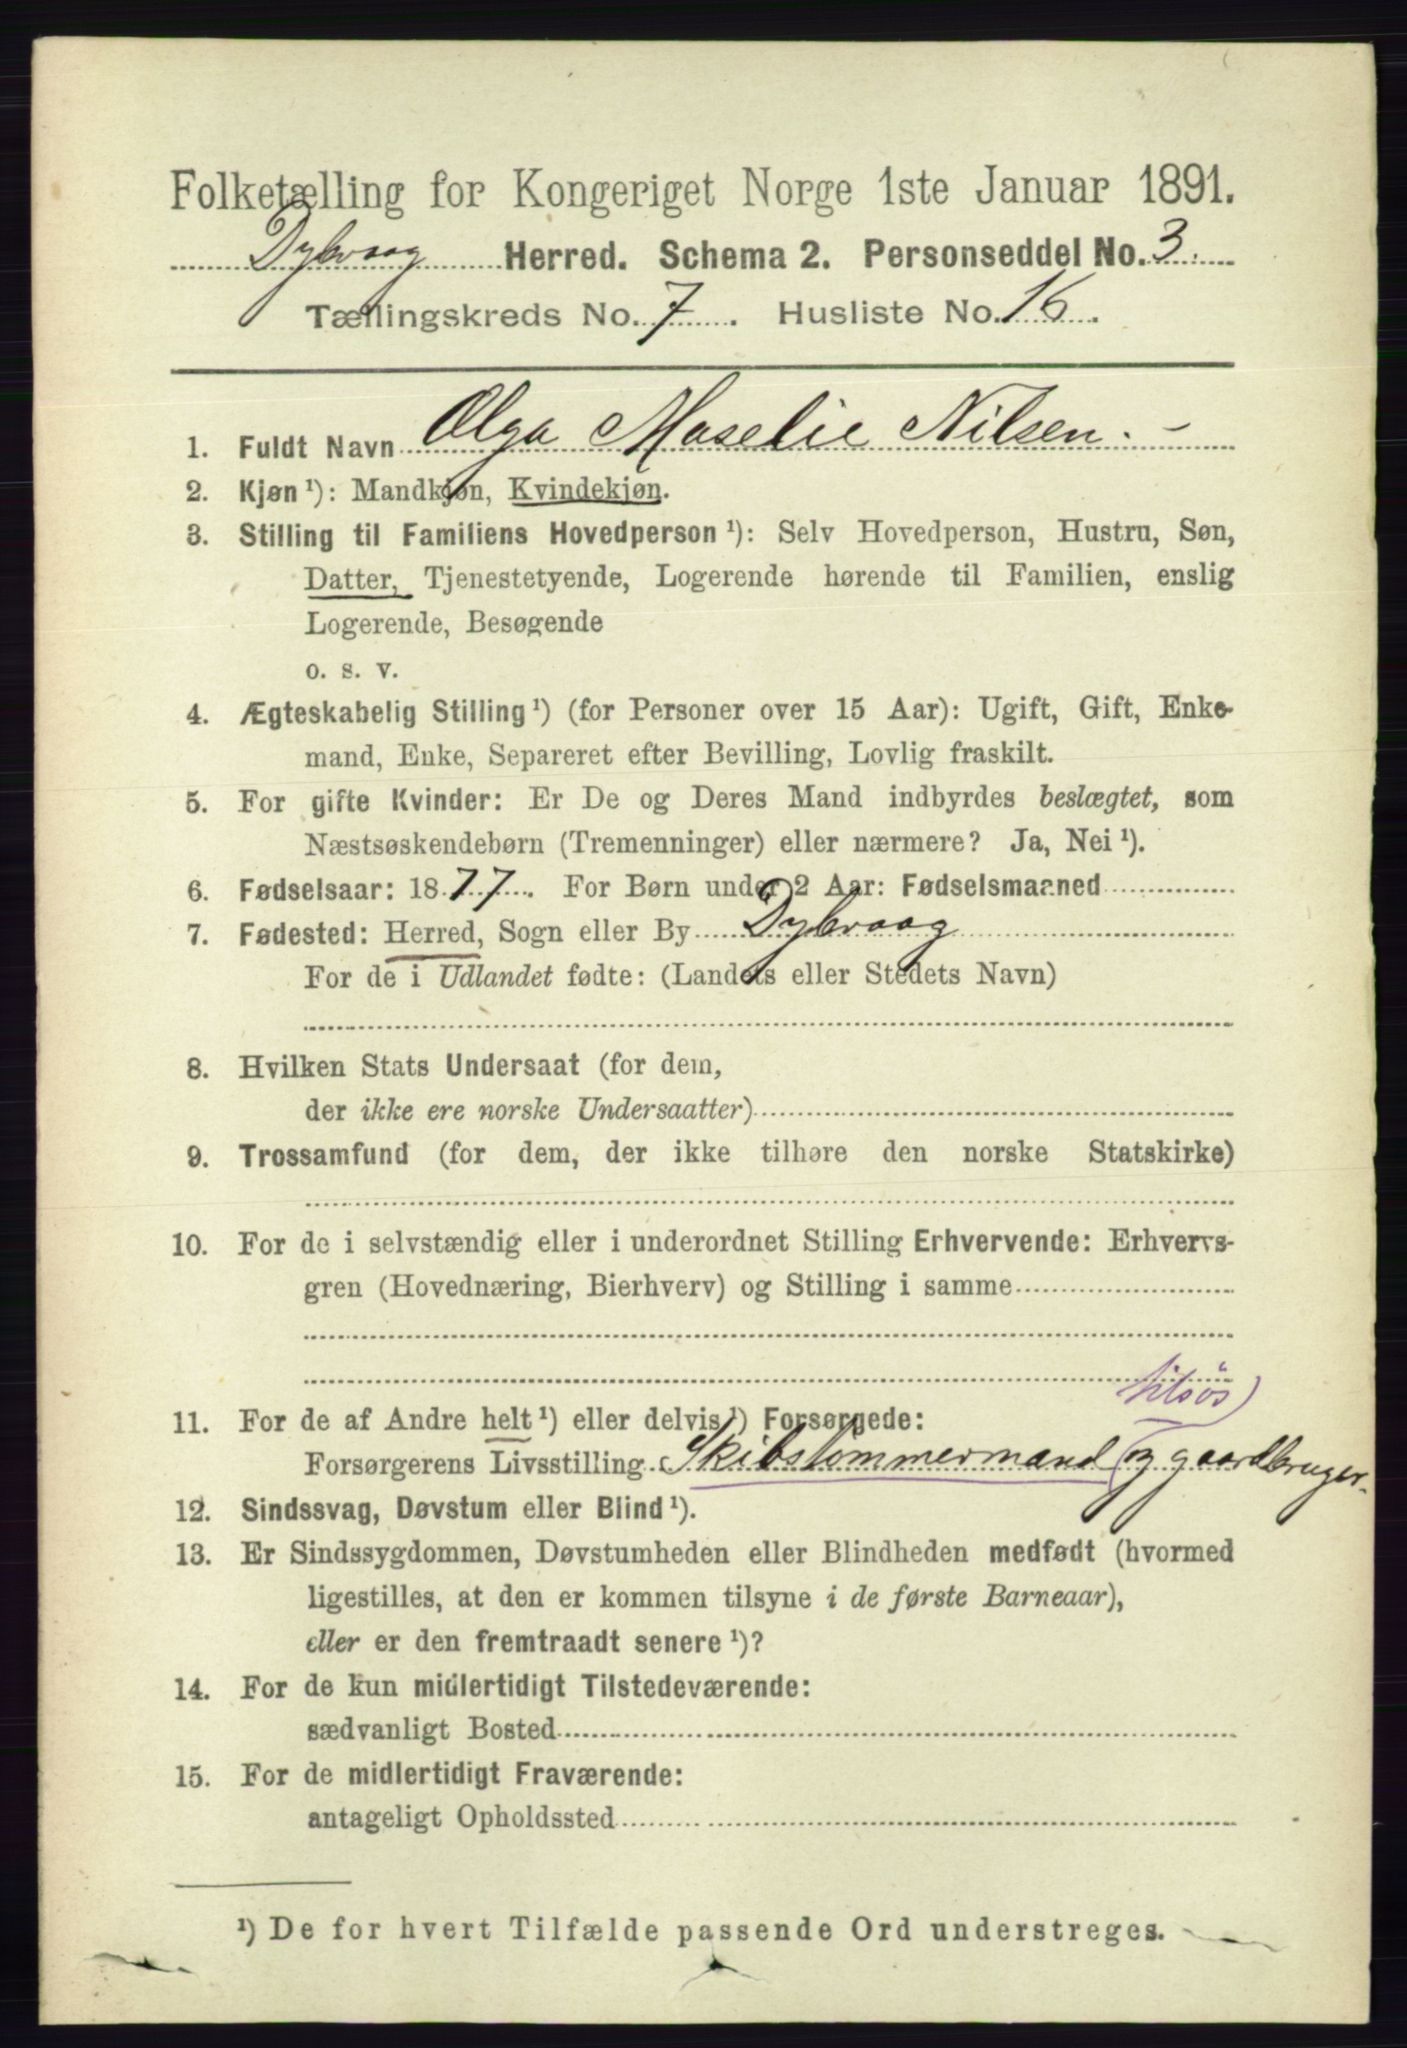 Folketælling for Kongeriget Norge 1ste Januar 1891.
Dybvaag Herred. Schema 2. Personseddel No. 3.
Tællingskreds No. 7. Husliste No. 16.
1. Fuldt Navn Olga Maselie Nilsen. -
2. Kjøn ¹): Mandkjøn, Kvindekjøn.
3. Stilling til Familiens Hovedperson ¹): Selv Hovedperson, Hustru, Søn,
Datter, Tjenestetyende, Logerende hørende til Familien, enslig
Logerende, Besøgende
o. s. v.
4. Ægteskabelig Stilling ¹) (for Personer over 15 Aar): Ugift, Gift, Enke-
mand, Enke, Separeret efter Bevilling, Lovlig fraskilt.
5. For gifte Kvinder: Er De og Deres Mand indbyrdes beslægtet, som
Næstsøskendebørn (Tremenninger) eller nærmere? Ja, Nei ¹).
6. Fødselsaar: 1877. For Børn under 2 Aar: Fødselsmaaned
7. Fødested: Herred, Sogn eller By Dybvaag
For de i Udlandet fødte: (Landets eller Stedets Navn)
8. Hvilken Stats Undersaat (for dem,
der ikke ere norske Undersaatter)
9. Trossamfund (for dem, der ikke tilhøre den norske Statskirke)
10. For de i selvstændig eller i underordnet Stilling Erhvervende: Erhvervs-
gren (Hovednæring, Bierhverv) og Stilling i samme
tilsøs)
11. For de af Andre helt ¹) eller delvis ¹) Forsørgede:
Forsørgerens Livsstilling Skibstømmermand (og gaardbruger.
12. Sindssvag, Døvstum eller Blind ¹).
13. Er Sindssygdommen, Døvstumheden eller Blindheden medfødt (hvormed
ligestilles, at den er kommen tilsyne i de første Barneaar),
eller er den fremtraadt senere ¹)?
14. For de kun midlertidigt Tilstedeværende:
sædvanligt Bosted
15. For de midlertidigt Fraværende:
antageligt Opholdssted
¹) De for hvert Tilfælde passende Ord understreges.